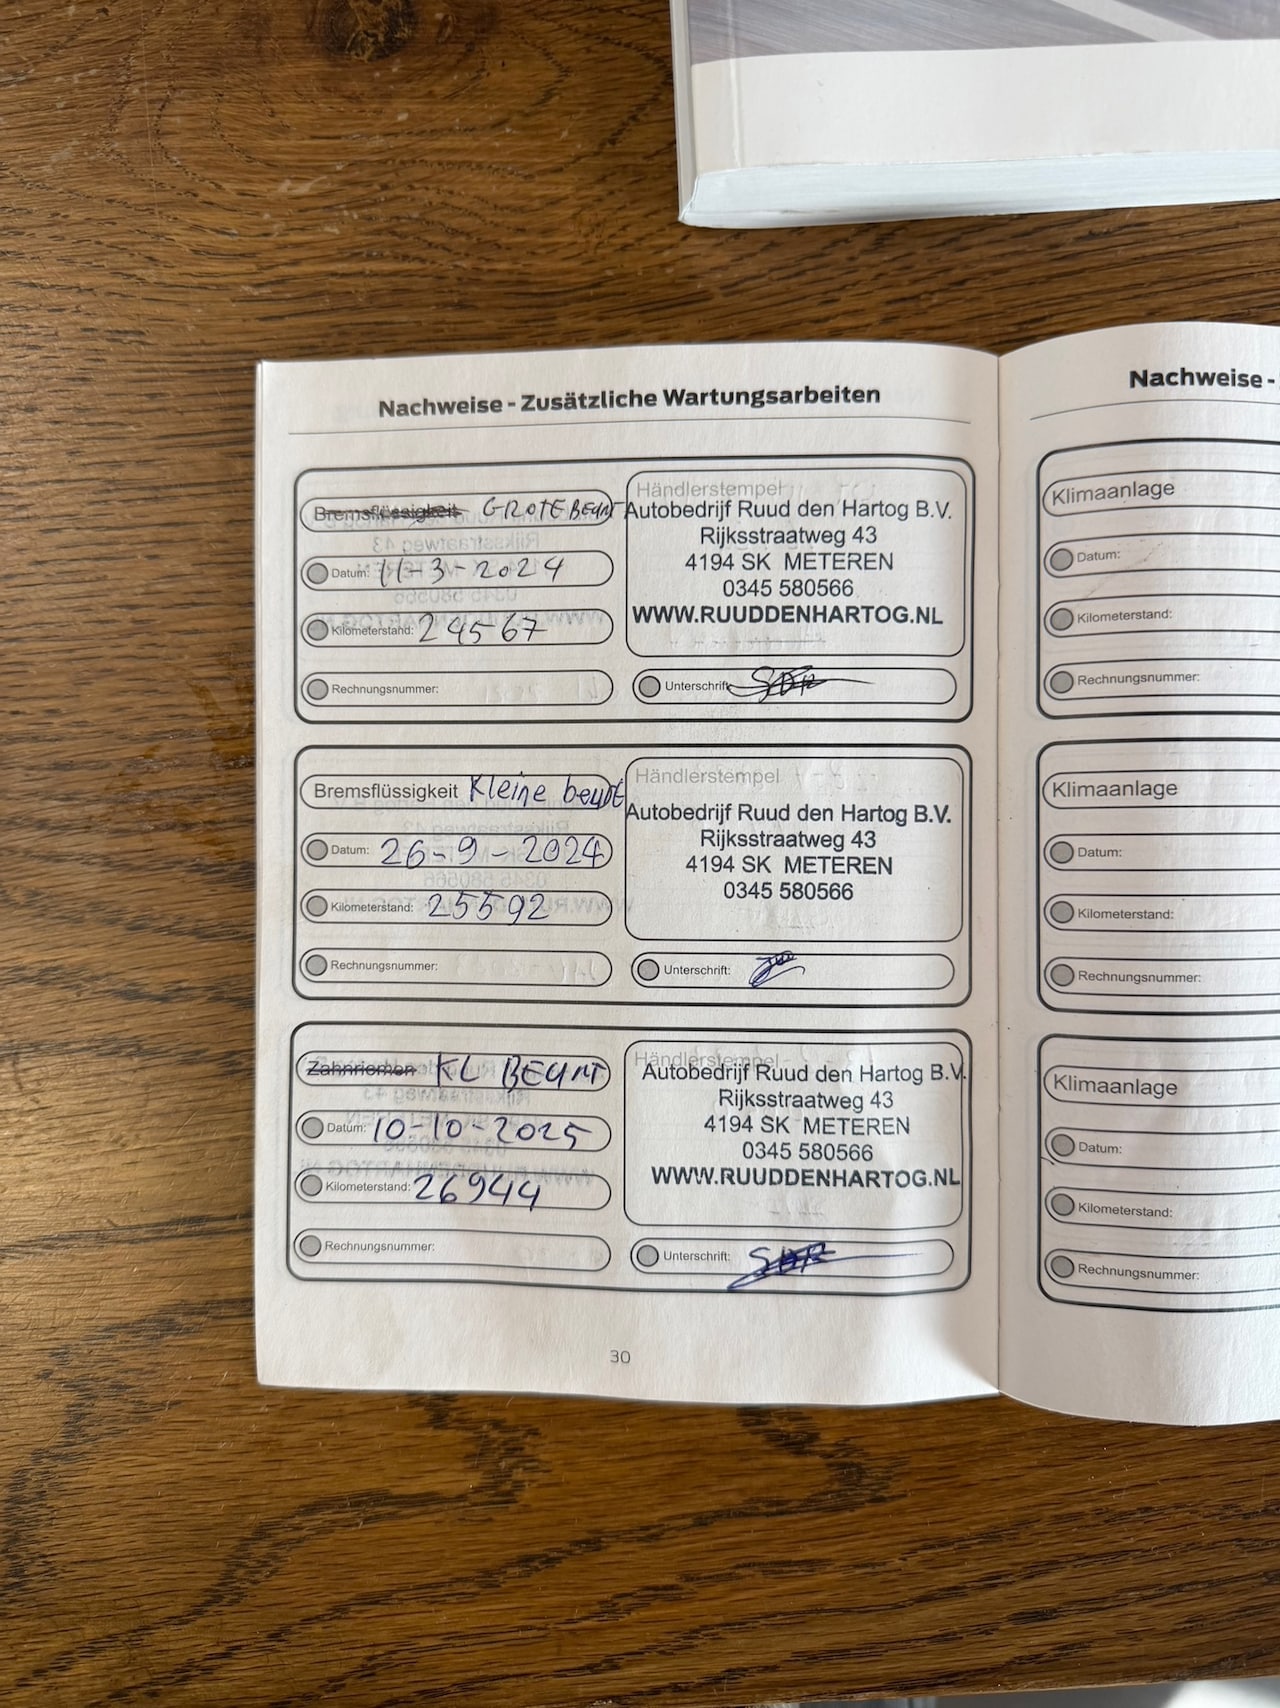 Nachweise - Zusätzliche Wartungsarbeiten
Bremsflüssigkeit GROTE BEURT
Datum: 11-3-2024
Kilometerstand: 24567
Rechnungsnummer:
Händlerstempel
Autobedrijf Ruud den Hartog B.V.
Rijksstraatweg 43
4194 SK METEREN
0345 580566
WWW.RUUDDENHARTOG.NL
Unterschrift:
Bremsflüssigkeit Kleine beurt
Datum: 26-9-2024
Kilometerstand: 25592
Rechnungsnummer:
Händlerstempel
Autobedrijf Ruud den Hartog B.V.
Rijksstraatweg 43
4194 SK METEREN
0345 580566
Unterschrift:
Zahnriemen KL BEURT
Datum: 10-10-2025
Kilometerstand: 26944
Rechnungsnummer:
Händlerstempel
Autobedrijf Ruud den Hartog B.V.
Rijksstraatweg 43
4194 SK METEREN
0345 580566
WWW.RUUDDENHARTOG.NL
Unterschrift:
30
Nachweise -
Klimaanlage
Datum:
Kilometerstand:
Rechnungsnummer:
Klimaanlage
Datum:
Kilometerstand:
Rechnungsnummer:
Klimaanlage
Datum:
Kilometerstand:
Rechnungsnummer: